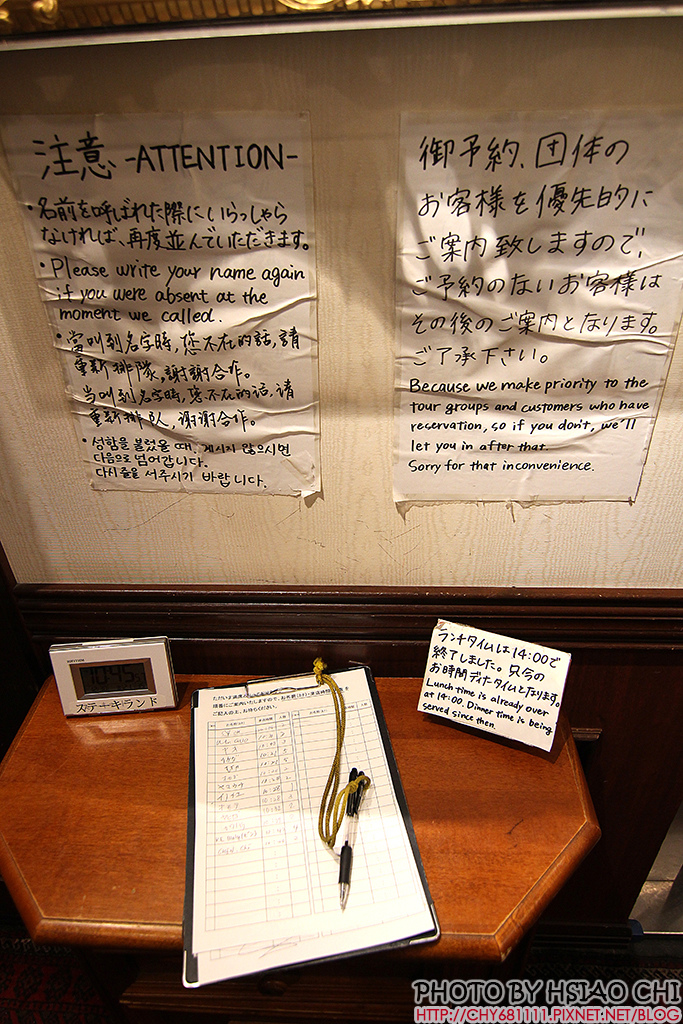 注意 -ATTENTION-
・名前を呼ばれた際にいらっしゃら
なければ、再度並んでいただきます。
・Please write your name again
if you were absent at the
moment we called.
・當叫到名字時,您不在的話,請
重新排隊,謝謝合作。
当叫到名字时,您不在的话,请
重新排队,谢谢合作。
・성함을 불렀을 때, 계시지 않으시면
다음으로 넘어갑니다.
다시 줄을 서주시기 바랍니다.
御予約、団体の
お客様を優先的に
ご案内致しますので、
ご予約のないお客様は
その後のご案内となります。
ご了承下さい。
Because we make priority to the
tour groups and customers who have
reservation, so if you don't, we'll
let you in after that.
Sorry for that inconvenience.
ランチタイムは14:00で
終了しました。只今の
お時間ディナータイムとなります。
Lunch time is already over
at 14:00. Dinner time is being
served since then.
10:45
ステーキランド
ご記入の上、お待ちください。
PHOTO BY HSIAO CHI
HTTP://CHY681111.PIXNET.NET/BLOG